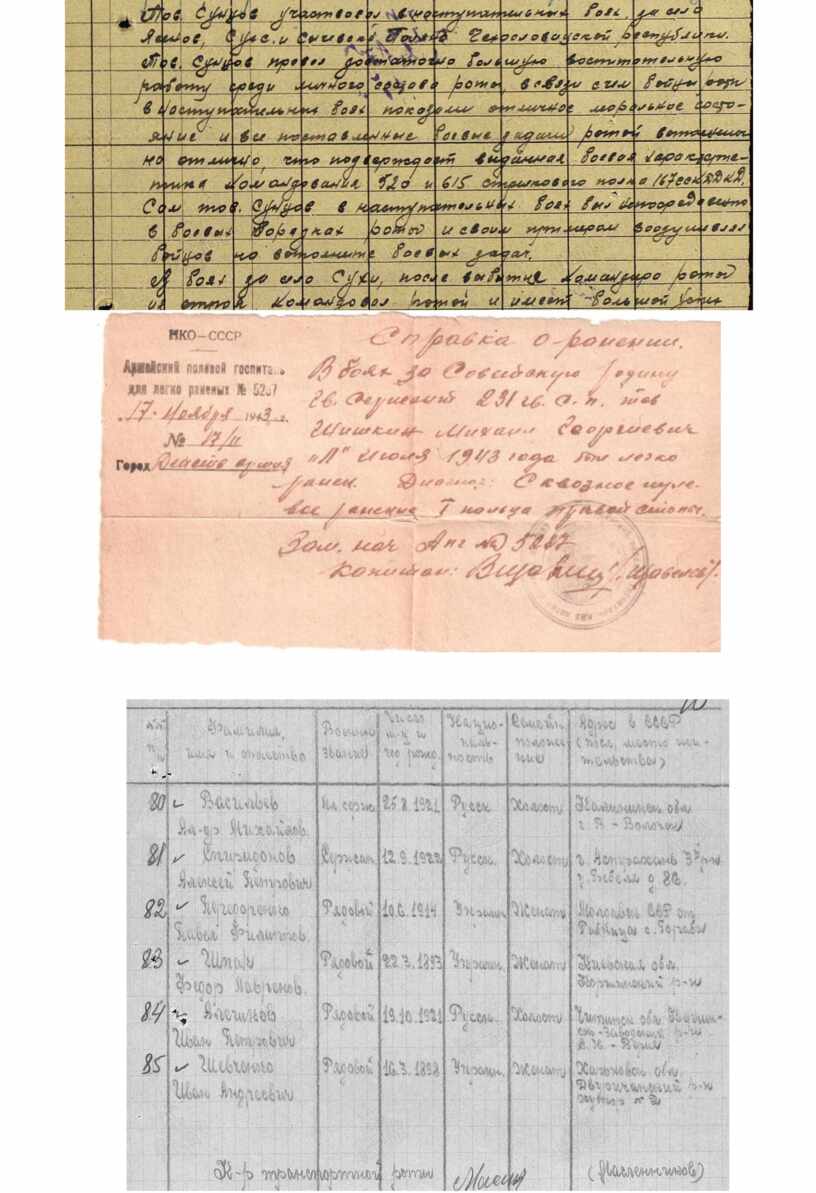 Тов. Сунцов участвовал в наступательных боях за село
Ясенов, Сухе и Польна Чехословацкой республики.
Тов. Сунцов провел достаточно большую воспитательную
работу среди личного состава роты, в связи с чем бойцы роты
в наступательных боях показали отличное моральное состо-
яние и все поставленные боевые задачи ротой выполнены
на отлично, что подтверждает выданная боевая характерис-
тика командования 520 и 615 стрелкового полка 167
Сам тов. Сунцов в наступательных боях был непосредственно
в боевых порядках роты и своим примером воодушевлял
бойцов на выполнение боевых задач.
В боях за село Сухи, после выбытия командира роты
из строя командовал ротой и имеет большой успех
НКО–СССР
Армейский полевой госпиталь
для легко раненых № 5287
17 Ноября 1943 г.
№ 17/11
Город Действ армия
Справка о ранении.
В боях за Советскую родину
Гв. Сержант 231 гв. с. п. тов
Шишкин Михаил Георгиевич
"11" Июля 1943 года был легко
ранен. Диагноз: Сквозное пуле-
вое ранение I пальца правой стопы.
Зам. нач Апг № 5287
капитан:
№№ п/п
Фамилия, имя и отчество
Воинское звание
Число м-ц и год рожд.
Нацио-наль-ность
Семейн. положе-ние
Адрес в СССР (посл. место жи-тельства)
80 Васильев Ал-др Михайлов. Мл. серж. 25.8.1921 Русск. Холост Калининск. обл. г. В-Волочек
81 Спиридонов Алексей Петрович Сержан. 12.9.1922 Русск. Холост г. Астрахань 3й р-н у. Бебеля д. 86.
82 Павел Филиппов. Рядовой 10.6.1914 Украин. Женат Молдавск ССР ст Рибница с.
83 Шпак Федор Лавренов. Рядовой 22.3.1893 Украин. Женат Киевская обл. р-н
84 Иван Петрович Рядовой 19.10.1921 Русск. Холост Читинск. обл. р-н
85 Шевченко Иван Андреевич Рядовой 16.3.1898 Украин. Женат Харьковск обл. Двуричанский р-н хутор № 2
К-р транспортной роты (Масленников)